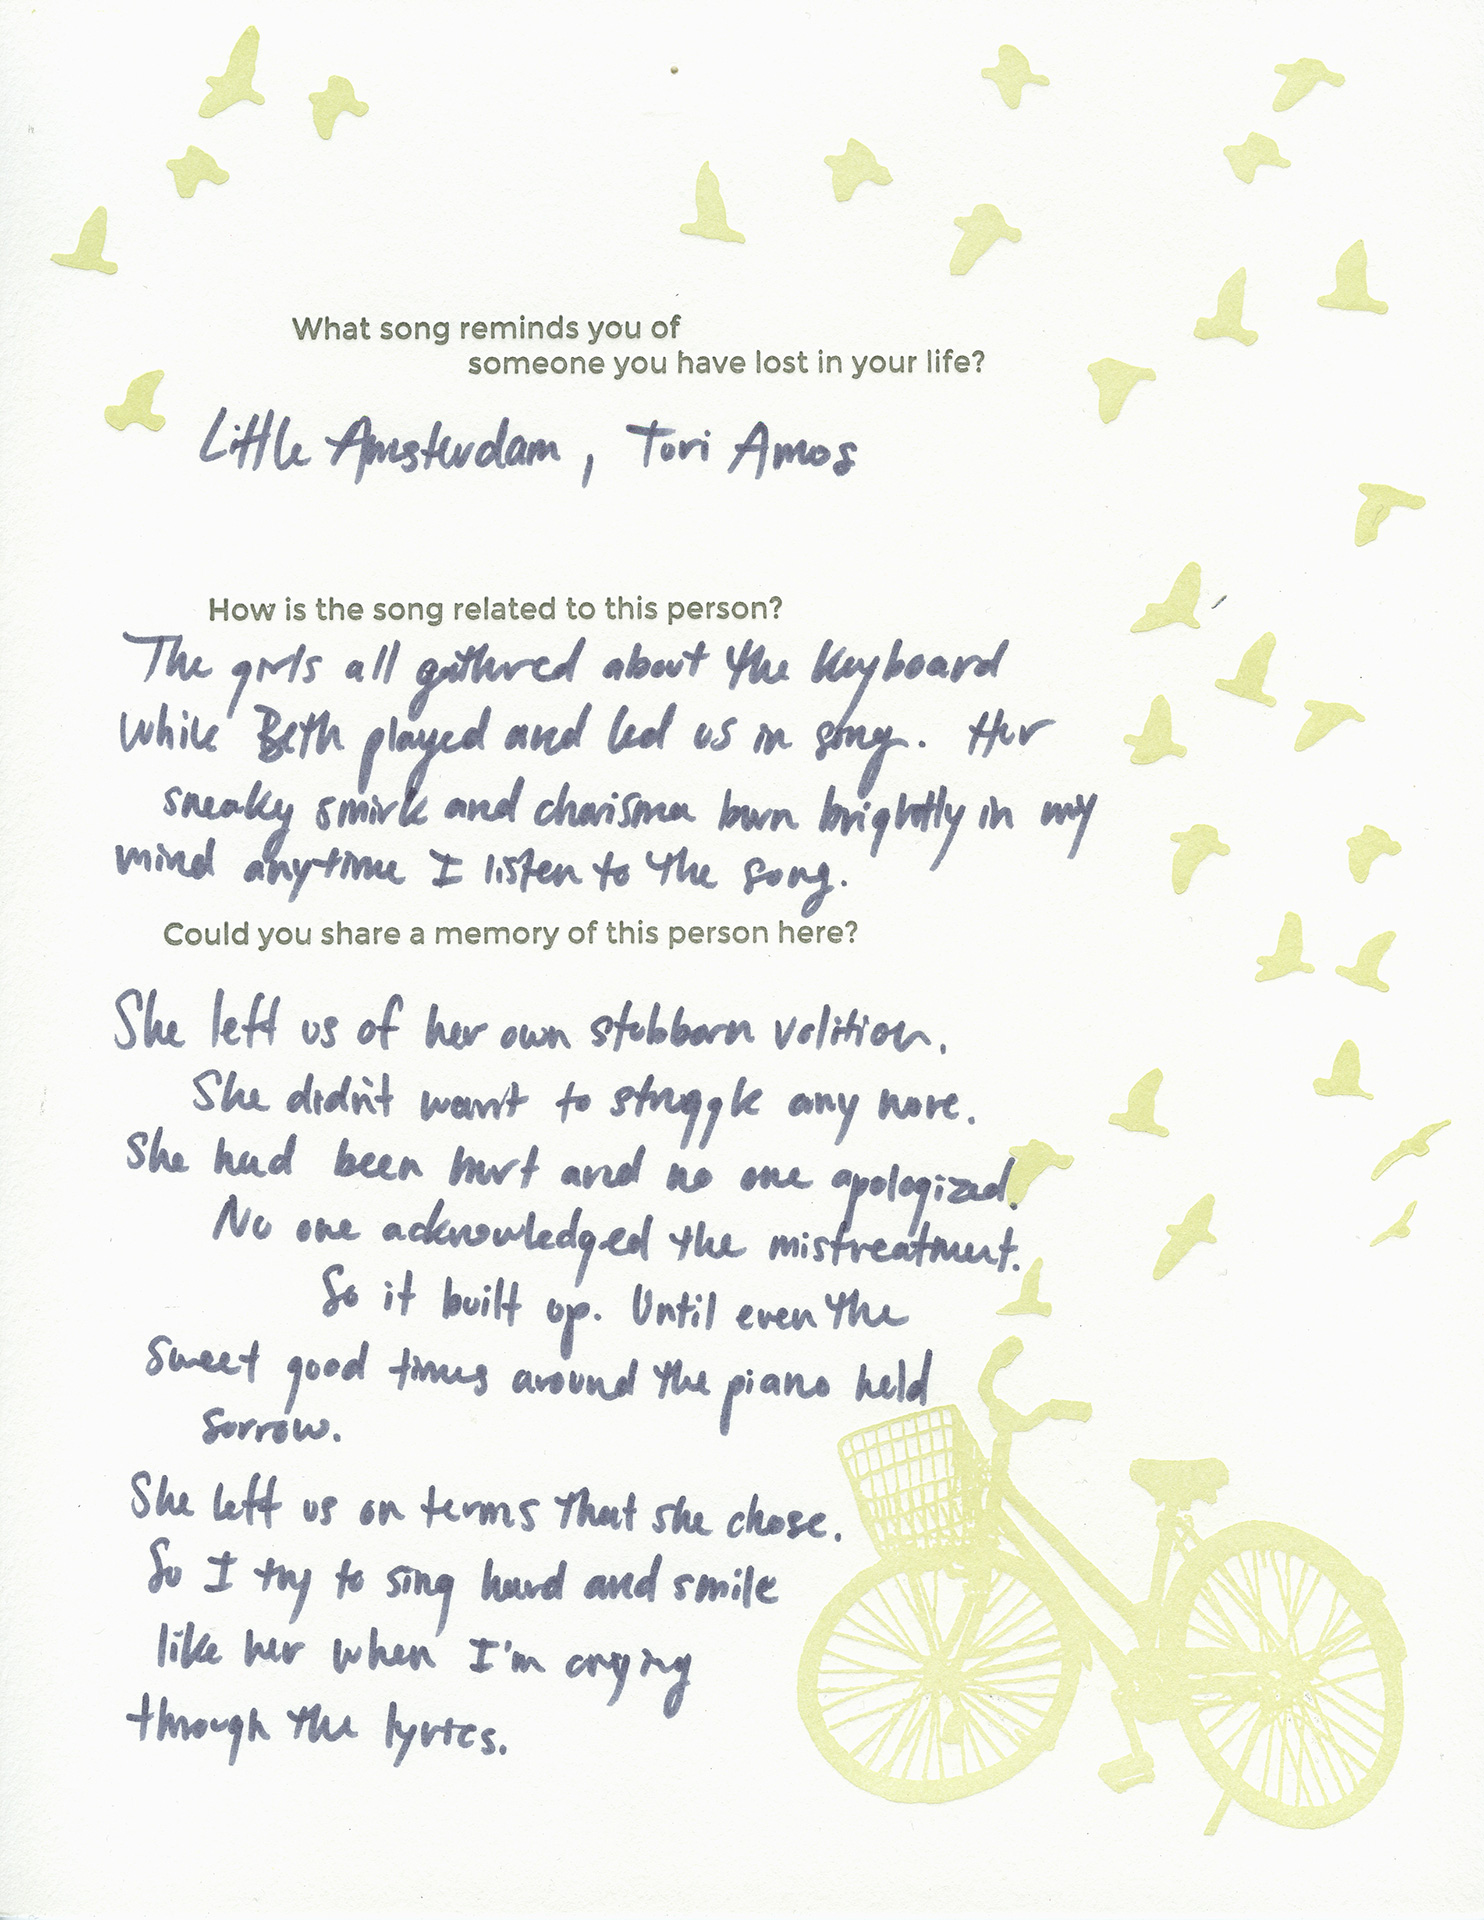 What song reminds you of
someone you have lost in your life?
Little Amsterdam, Tori Amos
How is the song related to this person?
The girls all gathered about the keyboard
while Beth played and led us in song. Her
sneaky smirk and charisma burn brightly in my
mind anytime I listen to the song.
Could you share a memory of this person here?
She left us of her own stubborn volition.
She didn't want to struggle any more.
She had been hurt and no one apologized.
No one acknowledged the mistreatment.
So it built up. Until even the
sweet good times around the piano held
sorrow.
She left us on terms that she chose.
So I try to sing hard and smile
like her when I'm crying
through the lyrics.